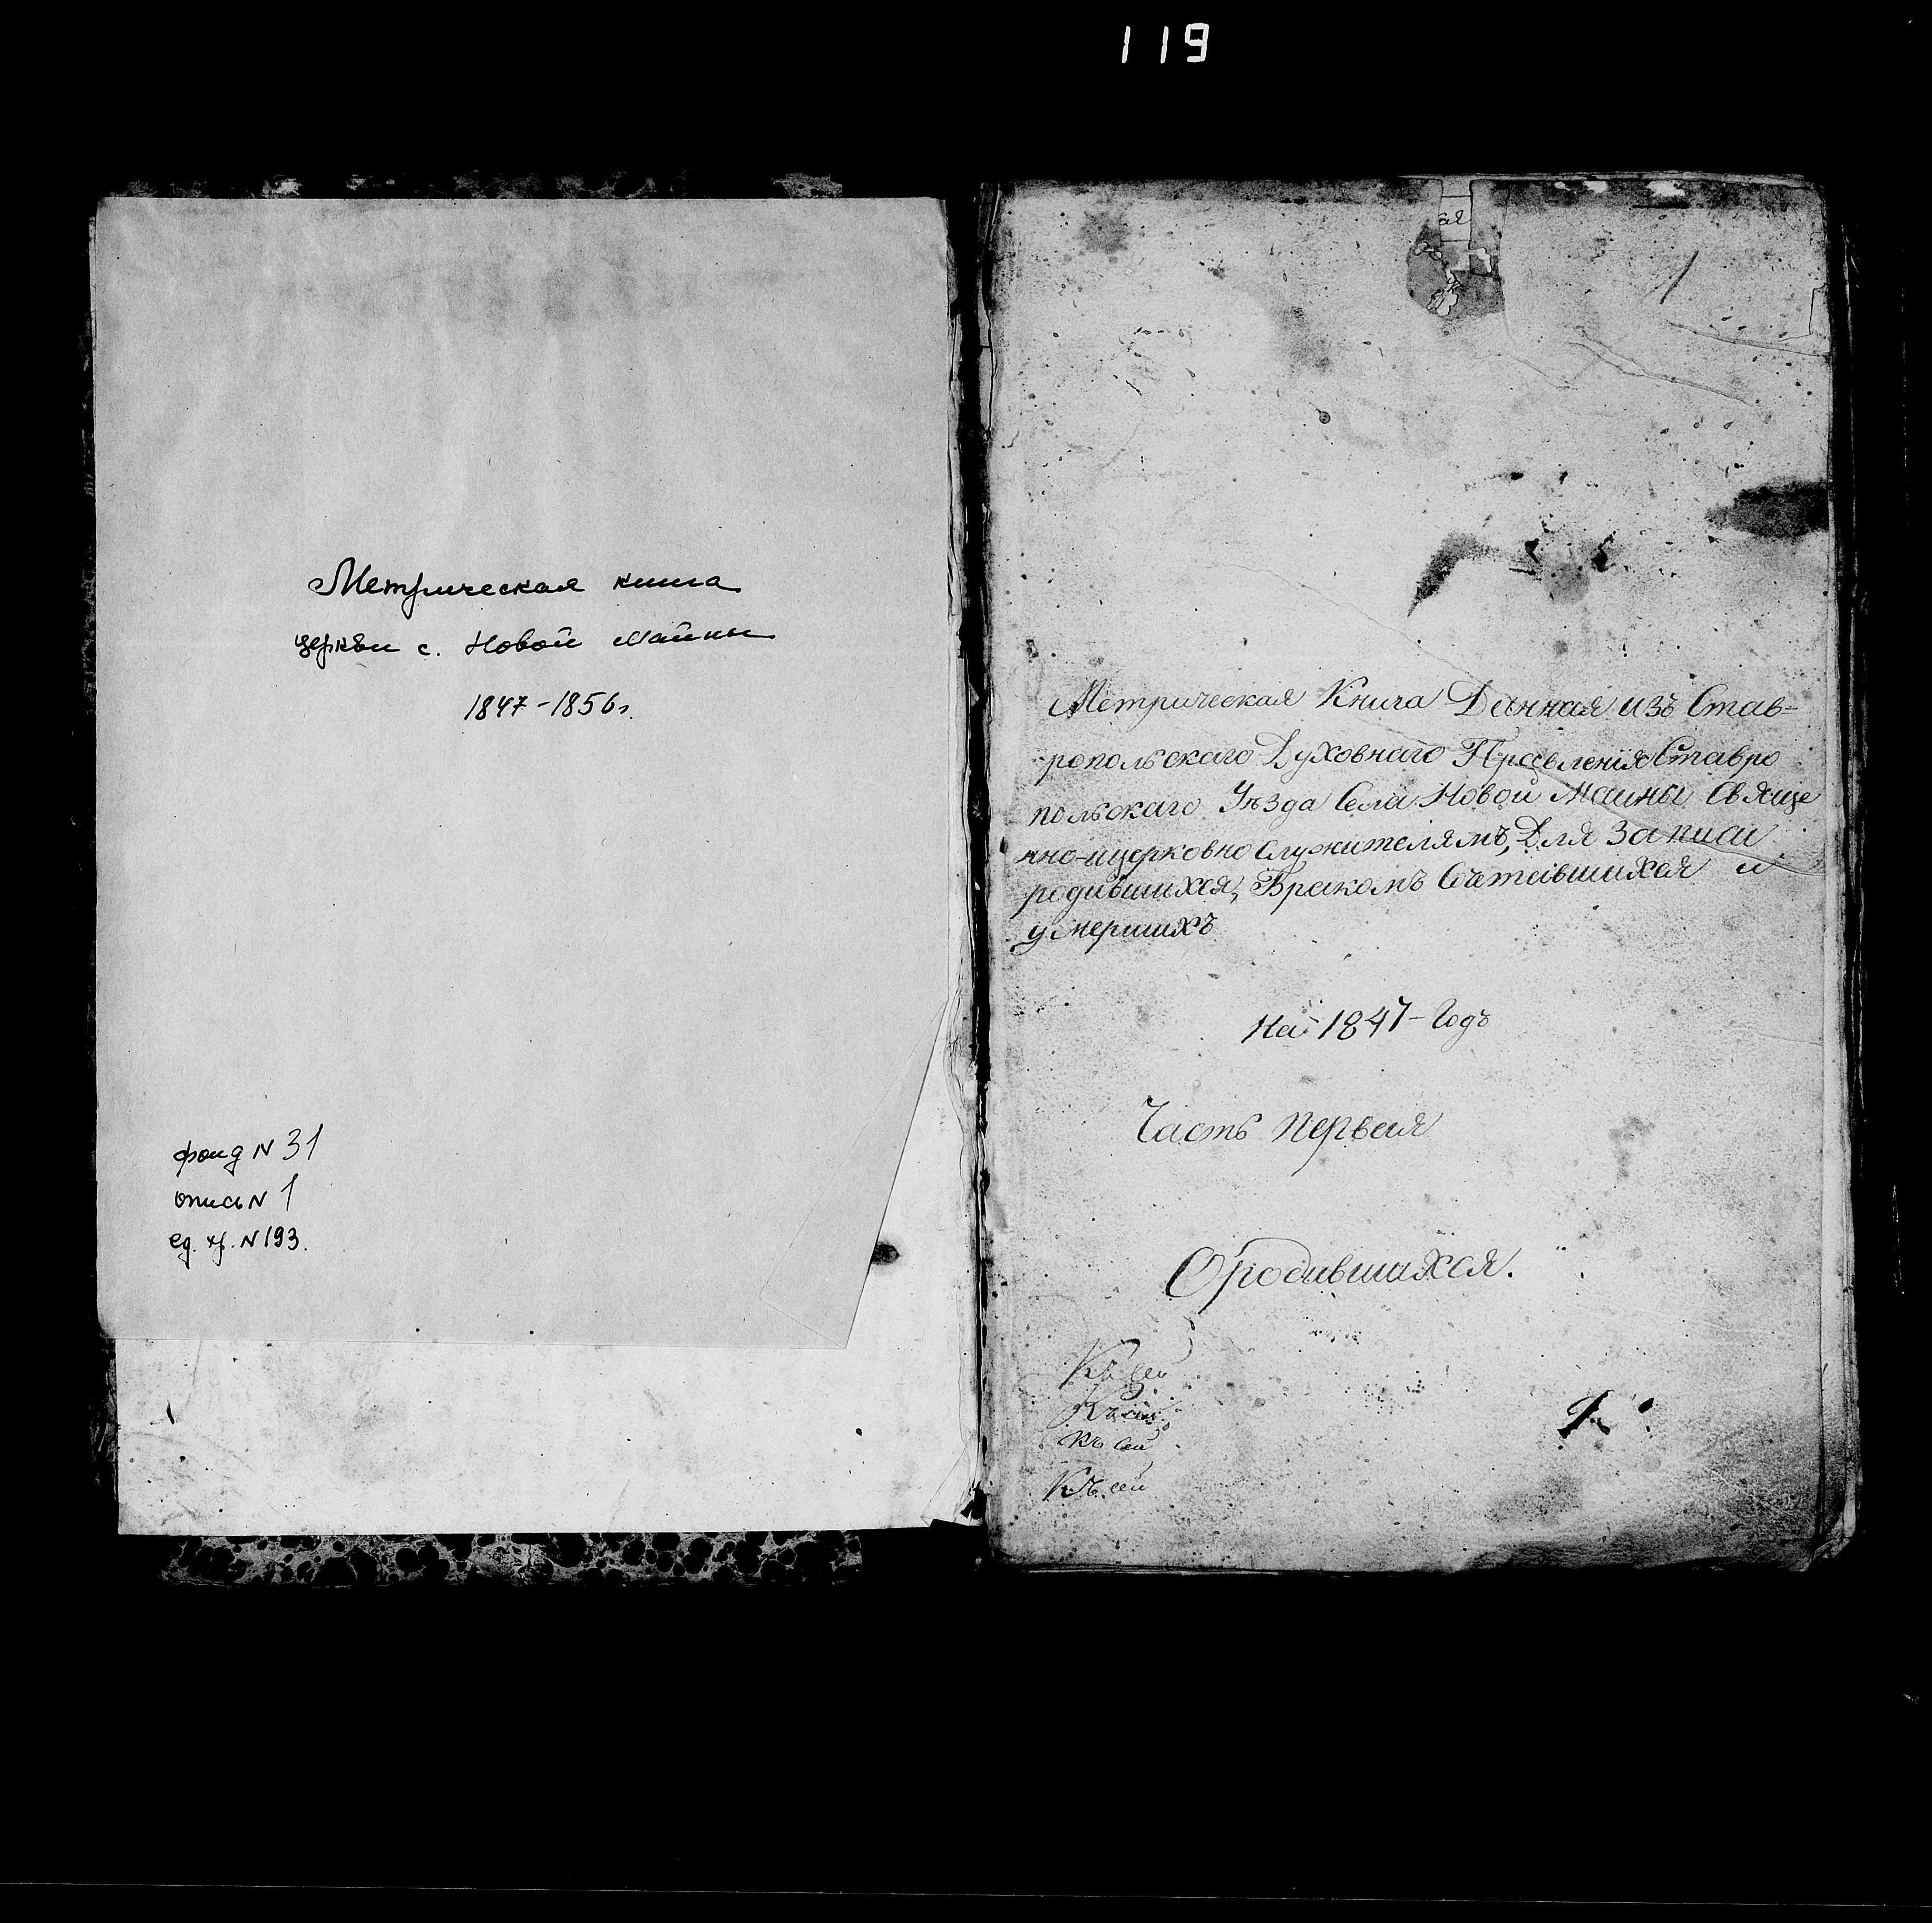 119
Метрическая книга
церкви с. Новой Майны
1847-1856г.
фонд N 31
опись N 1
ед. хр. N 193.
1
Метрическая Книга Данная изъ Став-
ропольскаго Духовнаго Правленія Ставро
польскаго Уѣзда Села Новой Маины Свяще
нно-ицерковно служителямъ, Для Записи
родившихся, Бракомъ Сочетавшихся и
умершихъ
На 1847-Годъ
Часть первая
О родившихся.
Къ сей
Къ сей
Къ сей
Къ сей